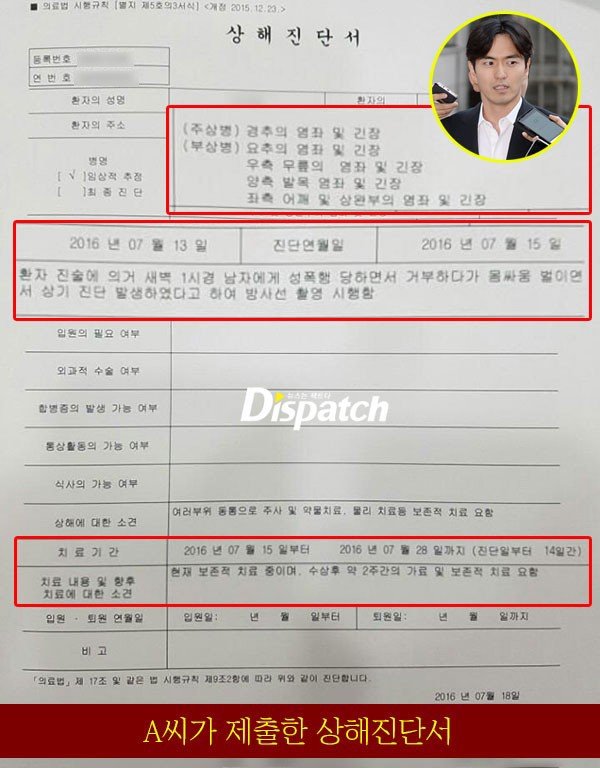 ■ 의료법 시행규칙 [별지 제5호의3서식] <개정 2015.12.23.>
상해진단서
등록번호
연번호
환자의 성명
환자의
환자의 주소
병명
[ √ ]임상적 추정
[ ]최종진단
(주상병) 경추의 염좌 및 긴장
(부상병) 요추의 염좌 및 긴장
우측 무릎의 염좌 및 긴장
양측 발목 염좌 및 긴장
좌측 어깨 및 상완부의 염좌 및 긴장
2016 년 07 월 13 일 진단연월일 2016 년 07 월 15 일
환자 진술에 의거 새벽 1시경 남자에게 성폭행 당하면서 거부하다가 몸싸움 벌이면
서 상기 진단 발생하였다고 하여 방사선 촬영 시행함
입원의 필요 여부
외과적 수술 여부
합병증의 발생 가능 여부
뉴스는 팩트다
Dispatch
통상활동의 가능 여부
식사의 가능 여부
상해에 대한 소견
여러부위 동통으로 주사 및 약물치료, 물리 치료등 보존적 치료 요함
치료기간 2016 년 07 월 15 일부터 2016 년 07 월 28 일까지 (진단일부터 14일간)
치료 내용 및 향후
치료에 대한 소견
현재 보존적 치료 중이며, 수상후 약 2주간의 가료 및 보존적 치료 요함
입원 · 퇴원 연월일 입원일: 년 월 일부터 퇴원일: 년 월 일까지
비고
「의료법」제 17조 및 같은 법 시행규칙 제9조2항에 따라 위와 같이 진단합니다.
2016 년 07월 18일
A씨가 제출한 상해진단서